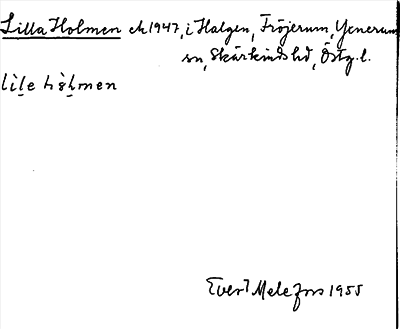 Lilla Holmen ek 1947, i Halgen, Fröjerum, Yxnerum
sn, Skärkinds hd, Östg. l.
lìle hòlmen
Evert Melefors 1955